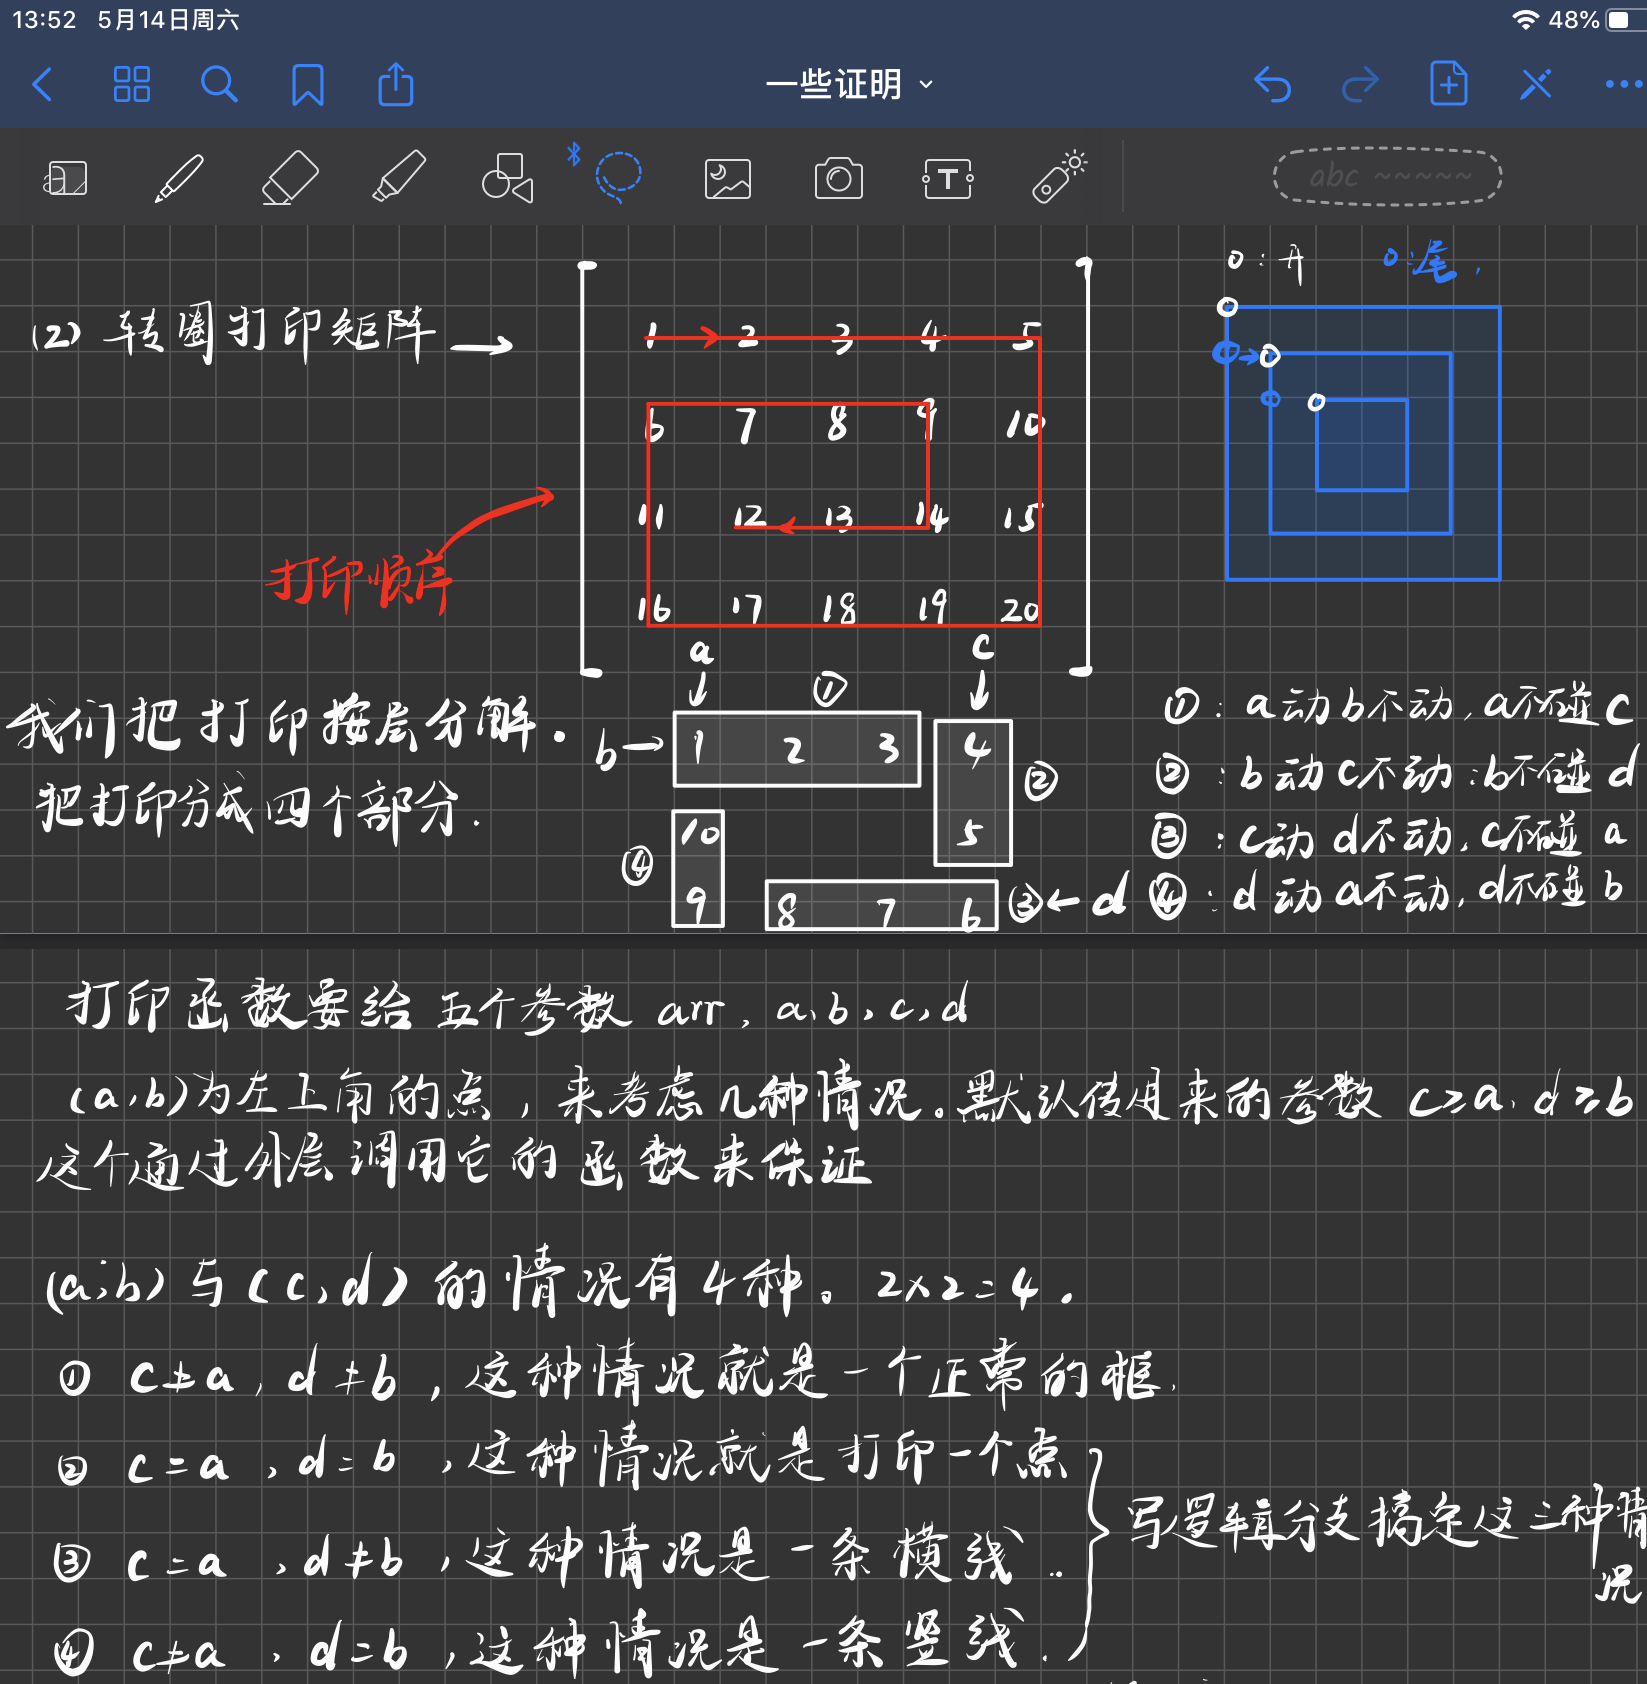 13:52 5月14日周六
48%
一些证明
abc ~~~~~
(2) 转圈打印矩阵
1 2 3 4 5
6 7 8 9 10
11 12 13 14 15
16 17 18 19 20
o : 开 o : 尾
打印顺序
我们把打印按层分解.
把打印分成四个部分.
a c
①
b→ 1 2 3 4
②
10 5
④
9 8 7 6 ③←d
①: a动b不动, a不碰c
②: b动c不动: b不碰d
③: c动d不动, c不碰a
④: d动a不动, d不碰b
打印函数要给五个参数 arr, a, b, c, d
(a,b)为左上角的点, 来考虑几种情况。默认传进来的参数 c≥a, d≥b
这个通过外层调用它的函数来保证
(a,b)与(c,d)的情况有4种。2×2=4.
① c≠a, d≠b, 这种情况就是一个正常的框.
② c=a, d=b, 这种情况就是打印一个点
③ c=a, d≠b, 这种情况是一条横线..
④ c≠a, d=b, 这种情况是一条竖线.
写逻辑分支搞定这三种情
况